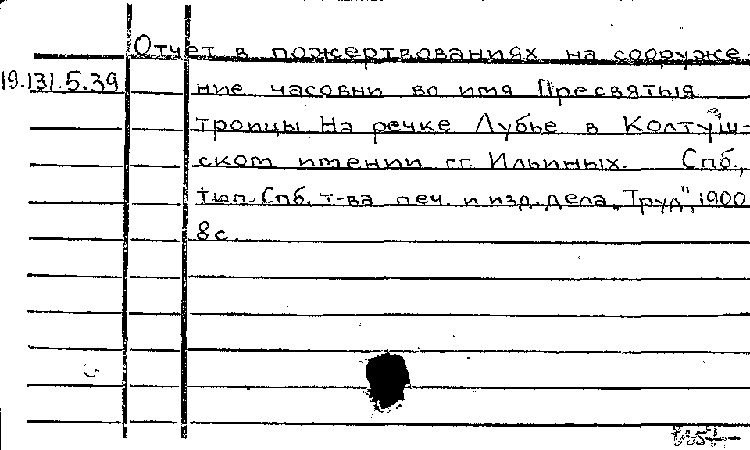 Отчет в пожертвованиях на сооруже-
19.131.5.39 ние часовни во имя Пресвятыя
троицы на речке Лубье в Колтуш-
ском имении гг. Ильиных. Спб.,
тип. Спб. т-ва печ. и изд. дела „Труд", 1900
8 с.